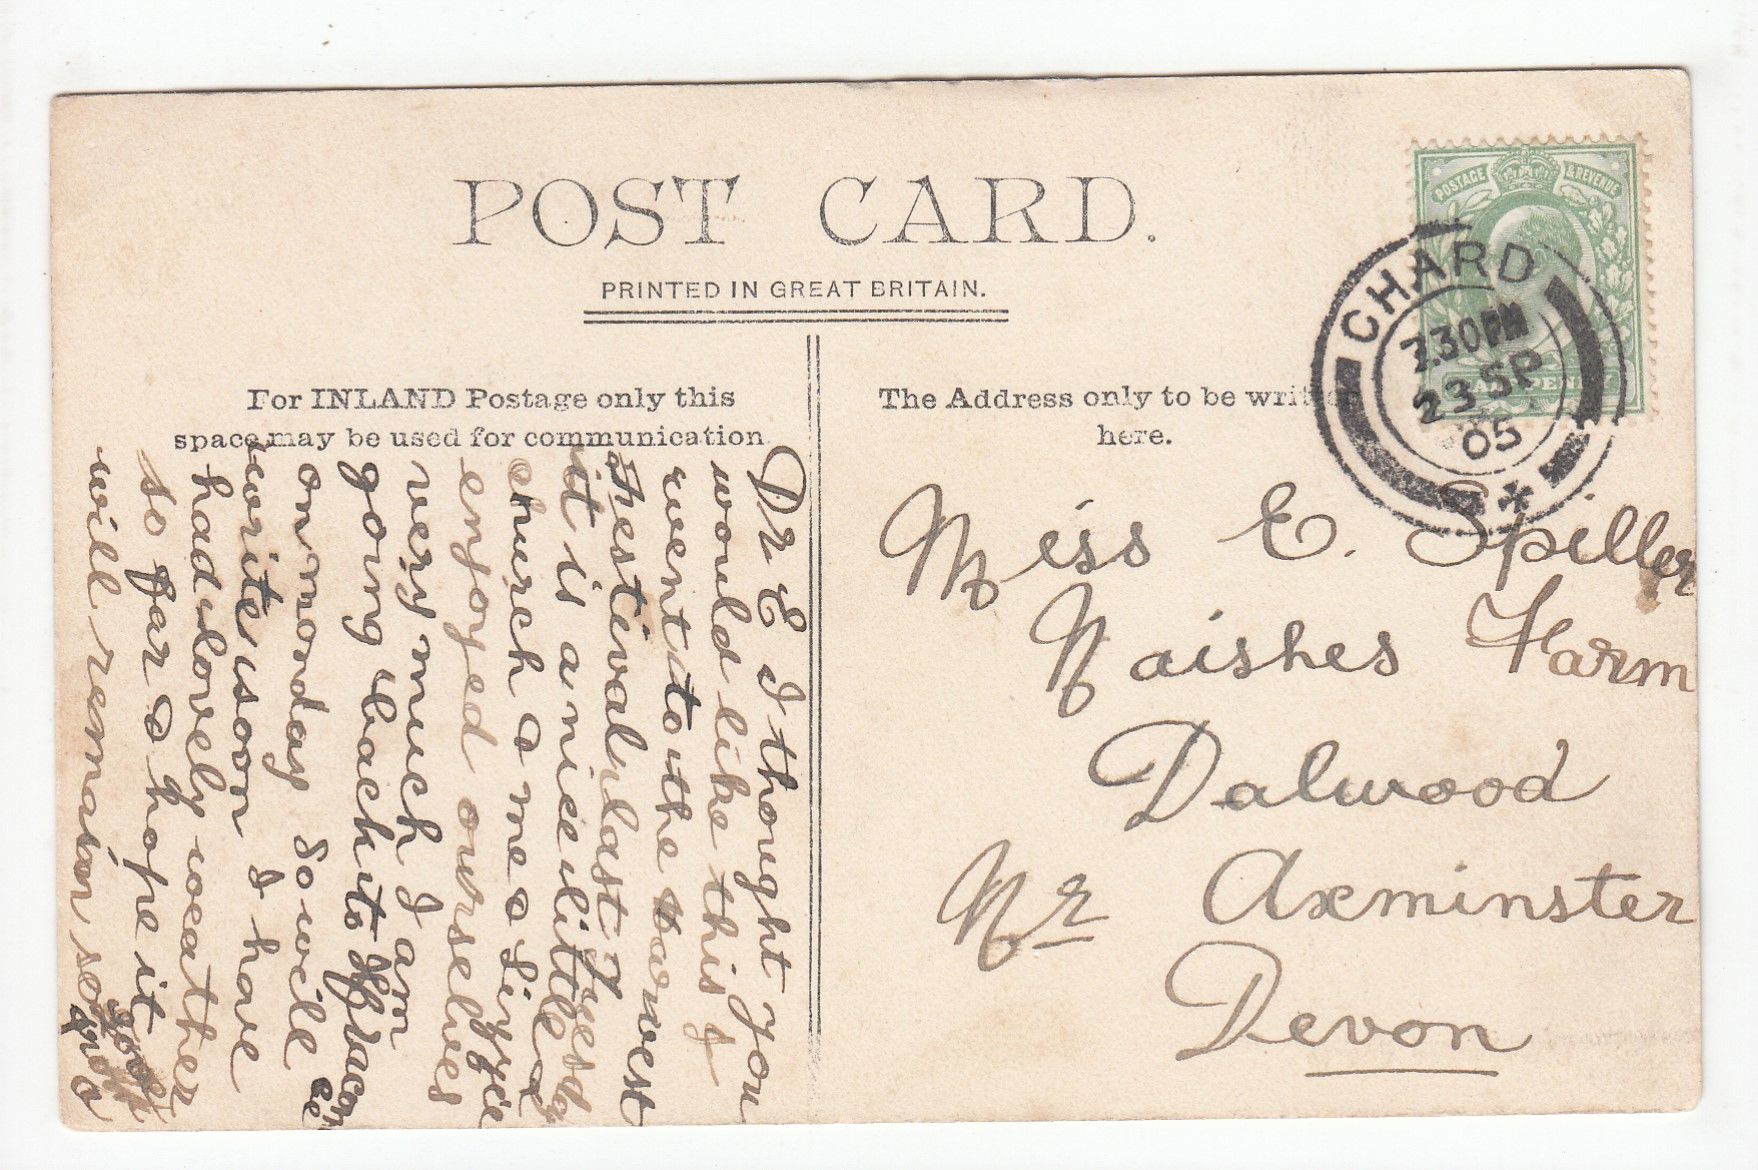 POST CARD.
PRINTED IN GREAT BRITAIN.
For INLAND Postage only this
space may be used for communication.
The Address only to be written
here.
POSTAGE & REVENUE
HALFPENNY
CHARD
7.30PM
23 SP
05
Dr E I thought you
would like this I
went to the harvest
Festival last Tuesday
it is a nice little
church & me & Lizzie
enjoyed ourselves
very much I am
going back to
on monday so will
write soon I have
had lovely weather
so far & hope it
will remain so
Miss E. Spiller
Naishes Farm
Dalwood
Nr Axminster
Devon